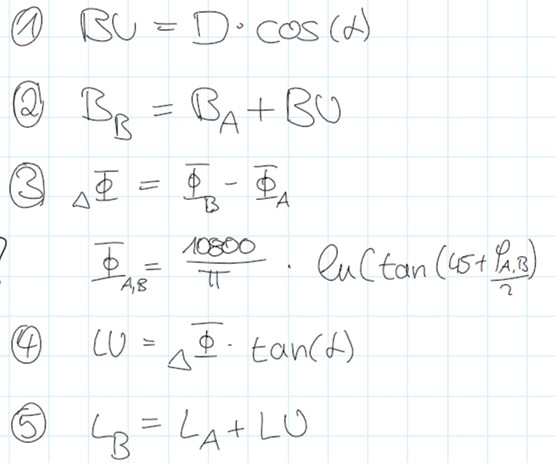 ① BU = D · cos(α)
② B_B = B_A + BU
③ ΔΦ̅ = Φ̅_B - Φ̅_A
? Φ̅_A,B = 10800/π · ln(tan(45 + φ_A,B/2)
④ LU = ΔΦ̅ · tan(α)
⑤ L_B = L_A + LU